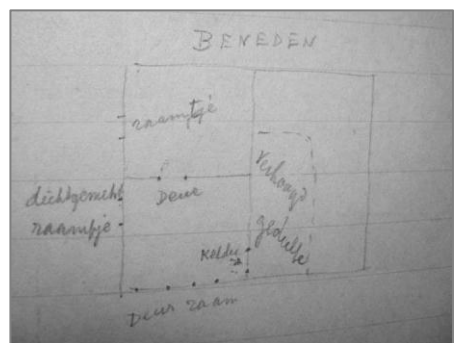 BENEDEN
raamtje
Deur
dichtgemacht
raampje
verhoogd
gedeelte
Kelder
Deur raam